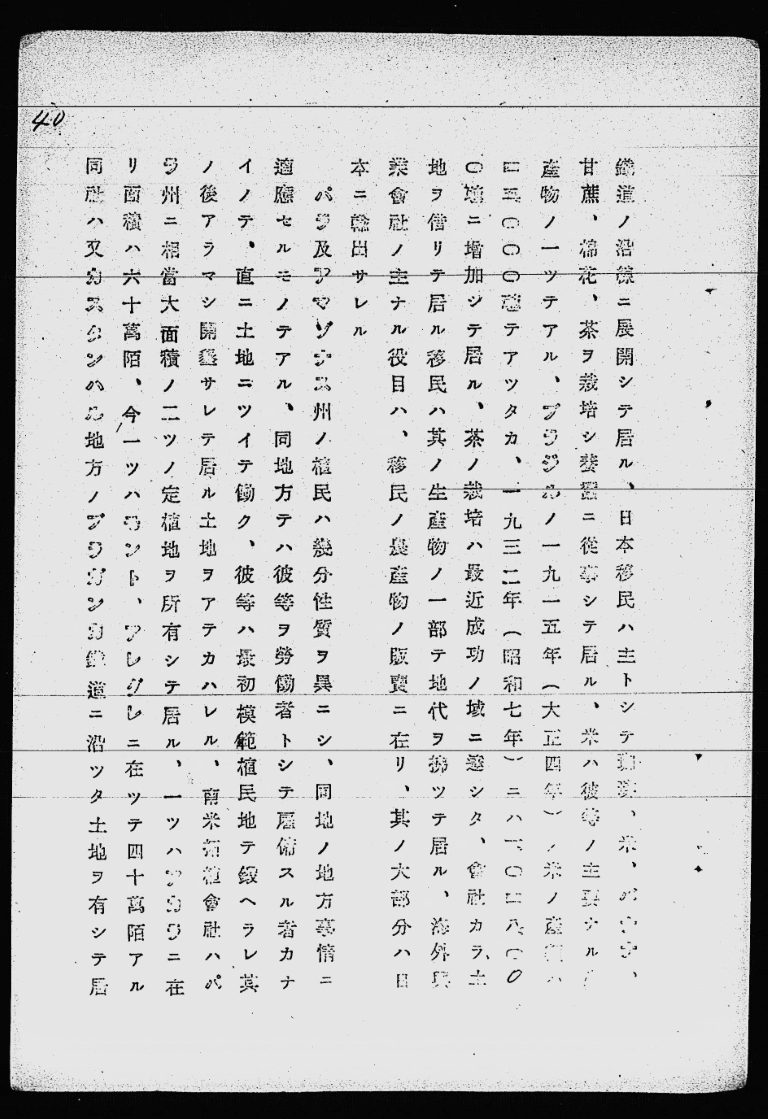 40
鐵道ノ沿線ニ展開シテ居ル、日本移民ハ主トシテ珈琲、米、バナナ、
甘蔗、棉花、茶ヲ栽培シ養蠶ニ從事シテ居ル、米ハ彼等ノ主要ナル
産物ノ一ツテアル、ブラジルノ一九一五年(大正四年)ノ米ノ産額ハ
○○○テアツタカ、一九三二年(昭和七年)ニハ
○ニ增加シテ居ル、茶ノ栽培ハ最近成功ノ域ニ達シタ、會社カラ土
地ヲ借リテ居ル移民ハ其ノ生産物ノ一部テ地代ヲ拂ツテ居ル、海外興
業會社ノ主ナル役目ハ、移民ノ農産物ノ販賣ニ在リ、其ノ大部分ハ日
本ニ輸出サレル
パラ及アマゾナス州ノ植民ハ幾分性質ヲ異ニシ、同地ノ地方事情ニ
適應セルモノテアル、同地方テハ彼等ヲ勞働者トシテ雇傭スル者カナ
イノテ、直ニ土地ニツイテ働ク、彼等ハ最初模範植民地テ鍛ヘラレ其
ノ後アラマシ開墾サレテ居ル土地ヲアテカハレル、南米拓植會社ハパ
ラ州ニ相當大面積ノ二ツノ定植地ヲ所有シテ居ル、一ツハアカラニ在
リ面積ハ六十萬陌、今一ツハモント、アレグレニ在ツテ四十萬陌アル
同社ハ又カスタンハル地方ノブラガンカ鐵道ニ沿ツタ土地ヲ有シテ居